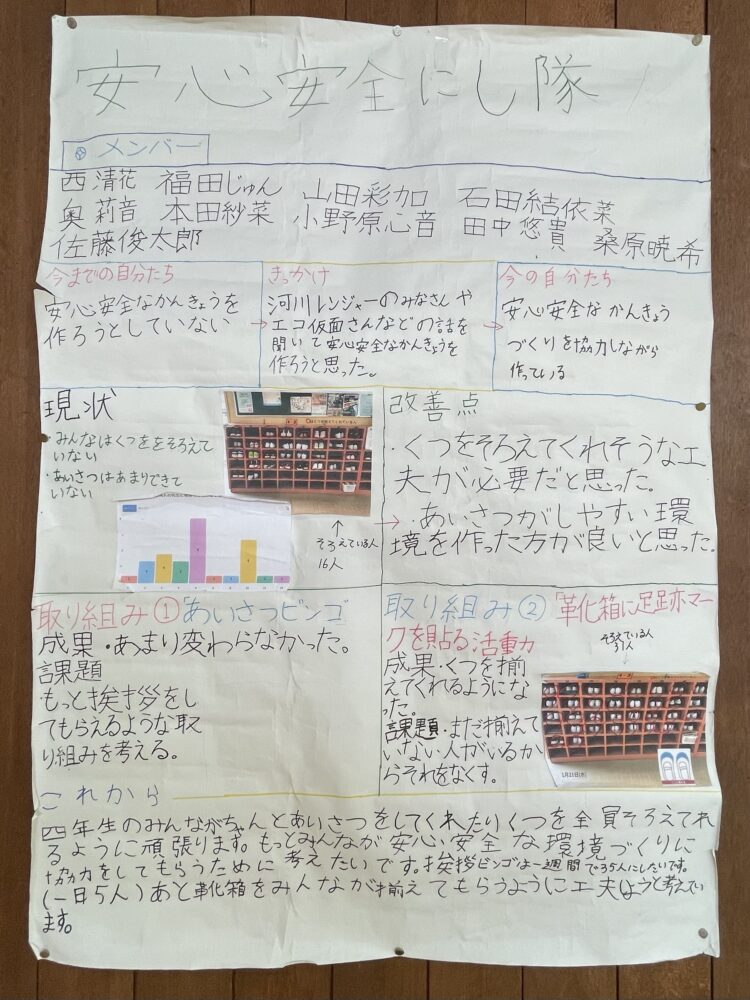 安心安全にし隊
メンバー
西 清花 福田じゅん 山田彩加 石田結依菜
奥 莉音 本田紗菜 小野原心音 田中 悠貴 桑原暁希
佐藤俊太郎
今までの自分たち
安心安全なかんきょうを
作ろうとしていない
きっかけ
河川レンジャーのみなさんや
エコ仮面さんなどの話を
聞いて安心安全なかんきょうを
作ろうと思った。
今の自分たち
安心安全な かんきょう
づくりを協力しながら
作っている
現状
・みんなはくつををそろえて
いない
・あいさつはあまりできて
いない
↑
そろえている人
16人
改善点
・くつをそろえてくれそうな工
夫が必要だと思った。
・あいさつがしやすい環
境を作った方が良いと思った。
取り組み①「あいさつビンゴ
成果・あまり変わらなかった。
課題
・もっと挨拶をし
てもらえるような取
り組みを考える。
取り組み②「革化箱に足跡マー
クを貼る活動力
成果・くつを揃
えてくれるようにな
った。
課題・まだ揃えて
いない人がいるか
らそれをなくす。
そろえている人
31人
↓
1月21日(水)
これから
四年生のみんながちゃんとあいさつをしてくれたりくつを全員そろえてれ
るように頑張ります。もっとみんなが安心・安全な環境づくりに
協力をしてもらうために考えたいです。挨拶ビンゴは一週間で35人にしたいです。
(一日5人)あと革化箱をみんなが揃えてもらうように工夫しようと考えてい
ます。